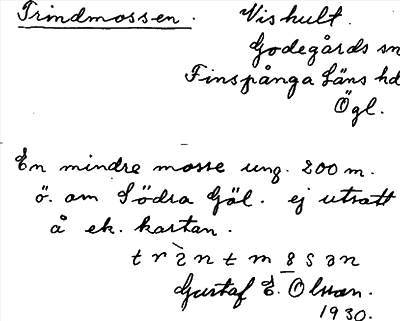 Trindmossen. Vishult.
Godegårds sn
Finspånga Läns hd
Ögl.
En mindre mosse ung. 200 m.
ö. om Södra Göl. ej utsatt
å ek. kartan.
Gustaf E. Olsson.
1930.